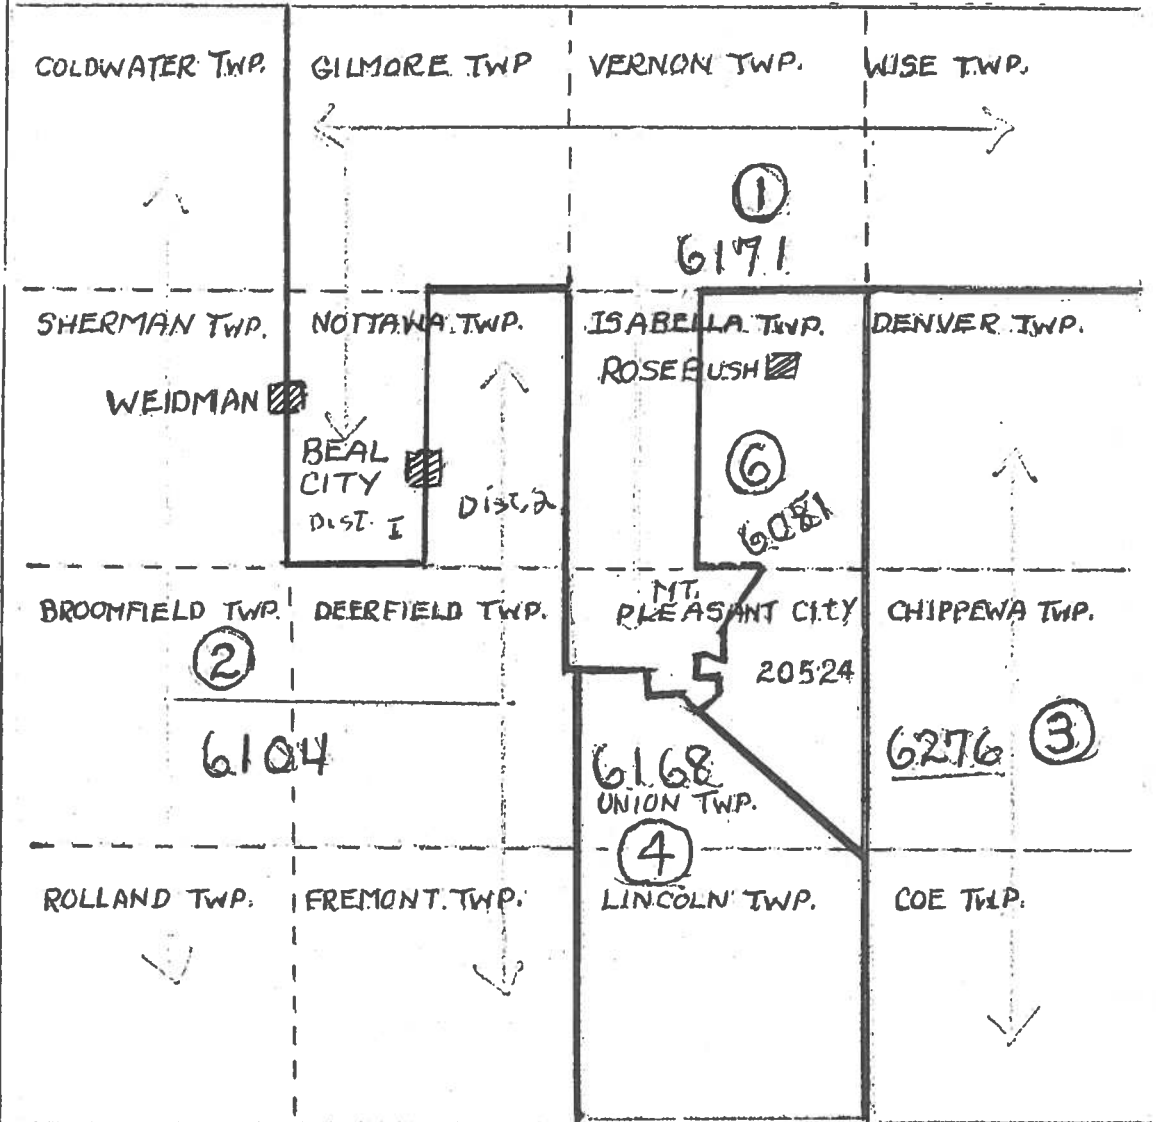 COLDWATER TWP.
GILMORE TWP
VERNON TWP.
WISE TWP.
1
6171
SHERMAN TWP.
NOTTAWA TWP.
ISABELLA TWP.
DENVER TWP.
ROSEBUSH
WEIDMAN
BEAL
CITY
DIST. I
Dist. 2
6
6081
BROOMFIELD TWP.
DEERFIELD TWP.
MT.
PLEASANT CITY
CHIPPEWA TWP.
2
20524
6104
6168
UNION TWP.
6276
3
4
ROLLAND TWP.
FREMONT. TWP.
LINCOLN TWP.
COE TWP.